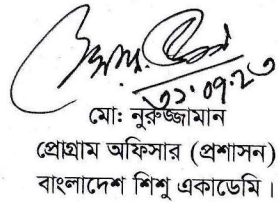 ৩১.০৭.২৩
মো: নুরুজ্জামান
প্রোগ্রাম অফিসার (প্রশাসন)
বাংলাদেশ শিশু একাডেমি।